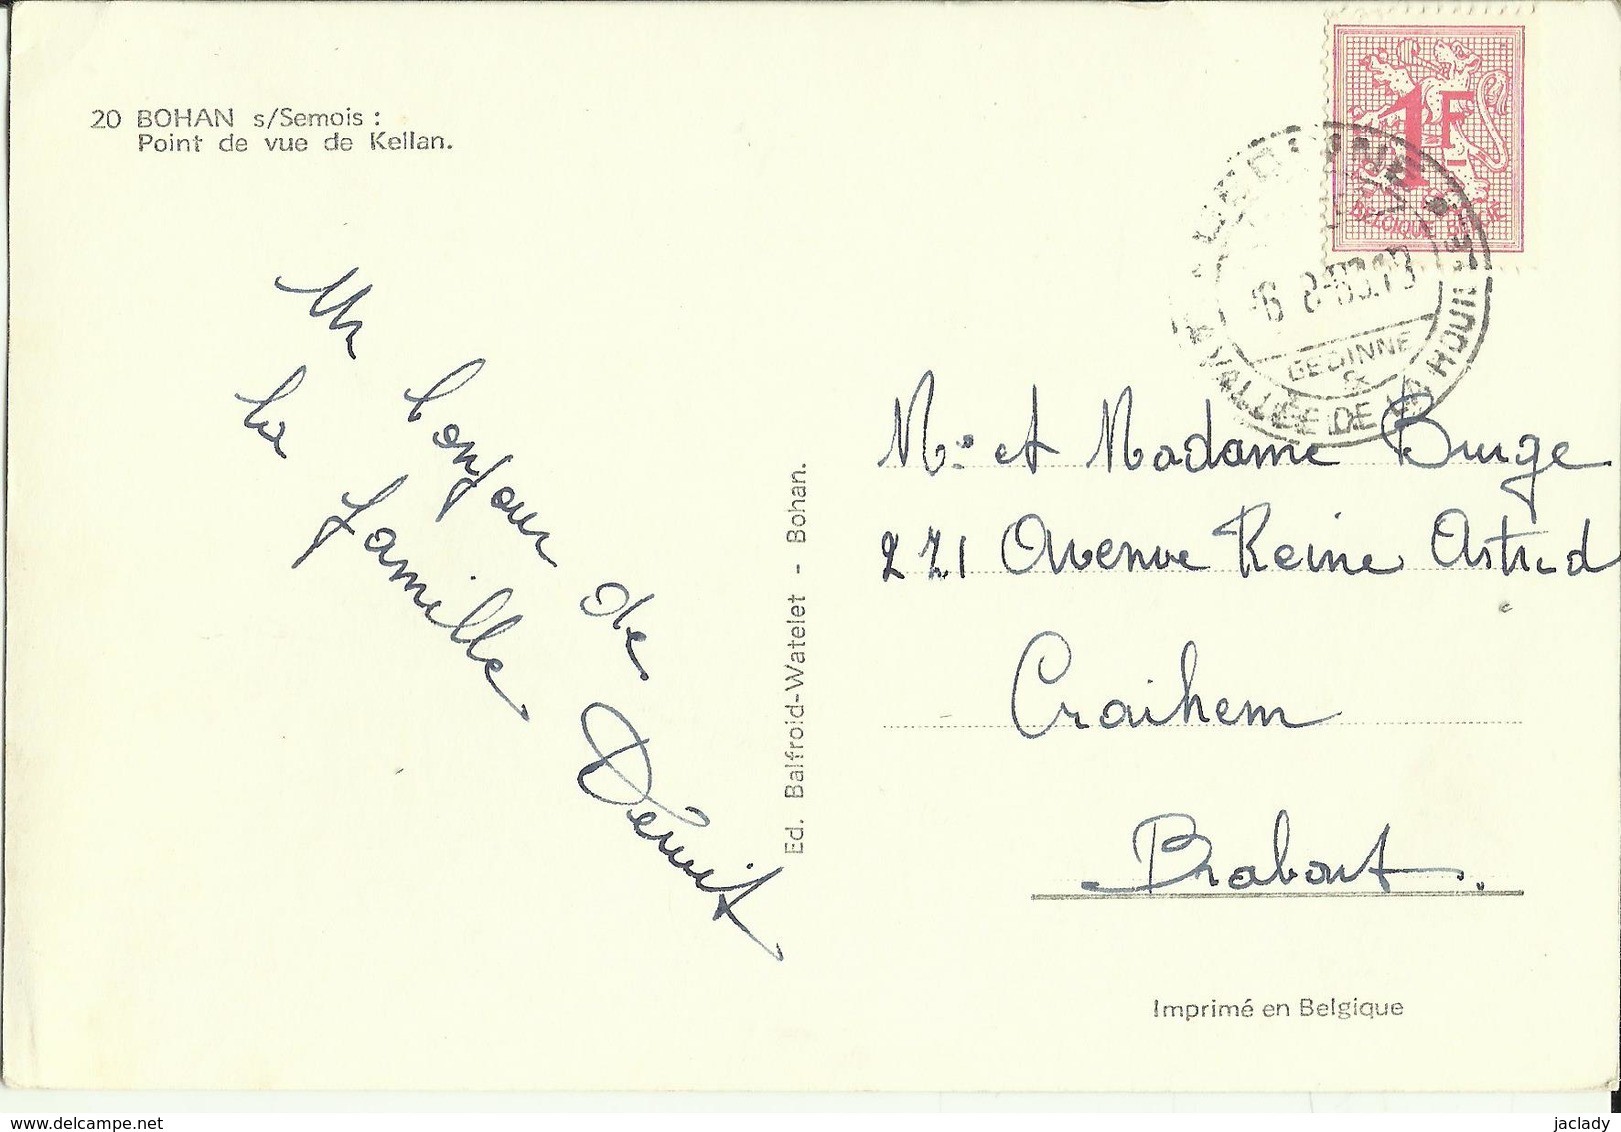 20 BOHAN s/Semois :
Point de vue de Kellan.
Un bonjour de
la famille Dénuit
Ed. Balfroid-Watelet - Bohan.
1F
BELGIQUE BELGIE
GEDINNE
VALLÉE DE LA HOUILLE
Mr et Madame Burge
221 Avenue Reine Astrid
Craihem
Brabant.
Imprimé en Belgique
jaclady